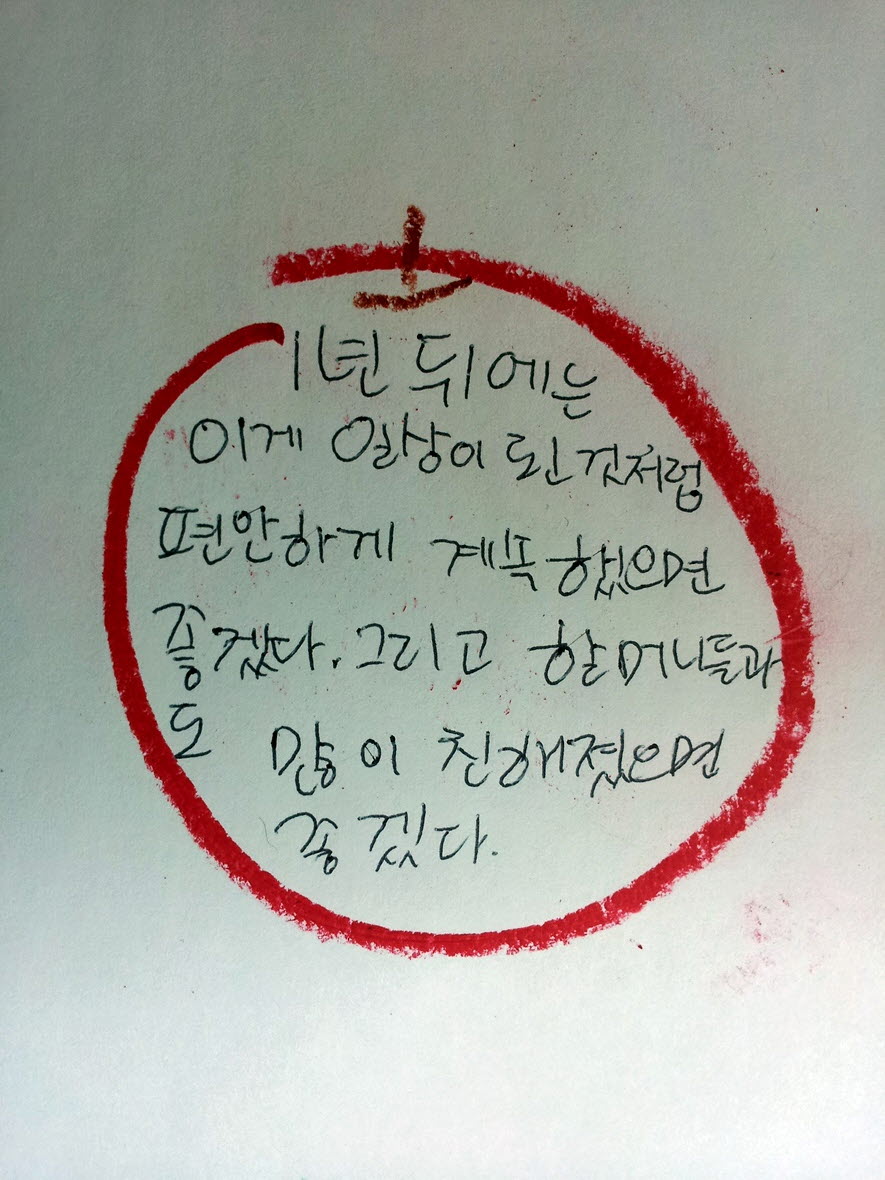 1년 뒤에는
이게 일상이 된 것처럼
편안하게 계속했으면
좋겠다. 그리고 할머니들과
도 많이 친해졌으면
좋겠다.